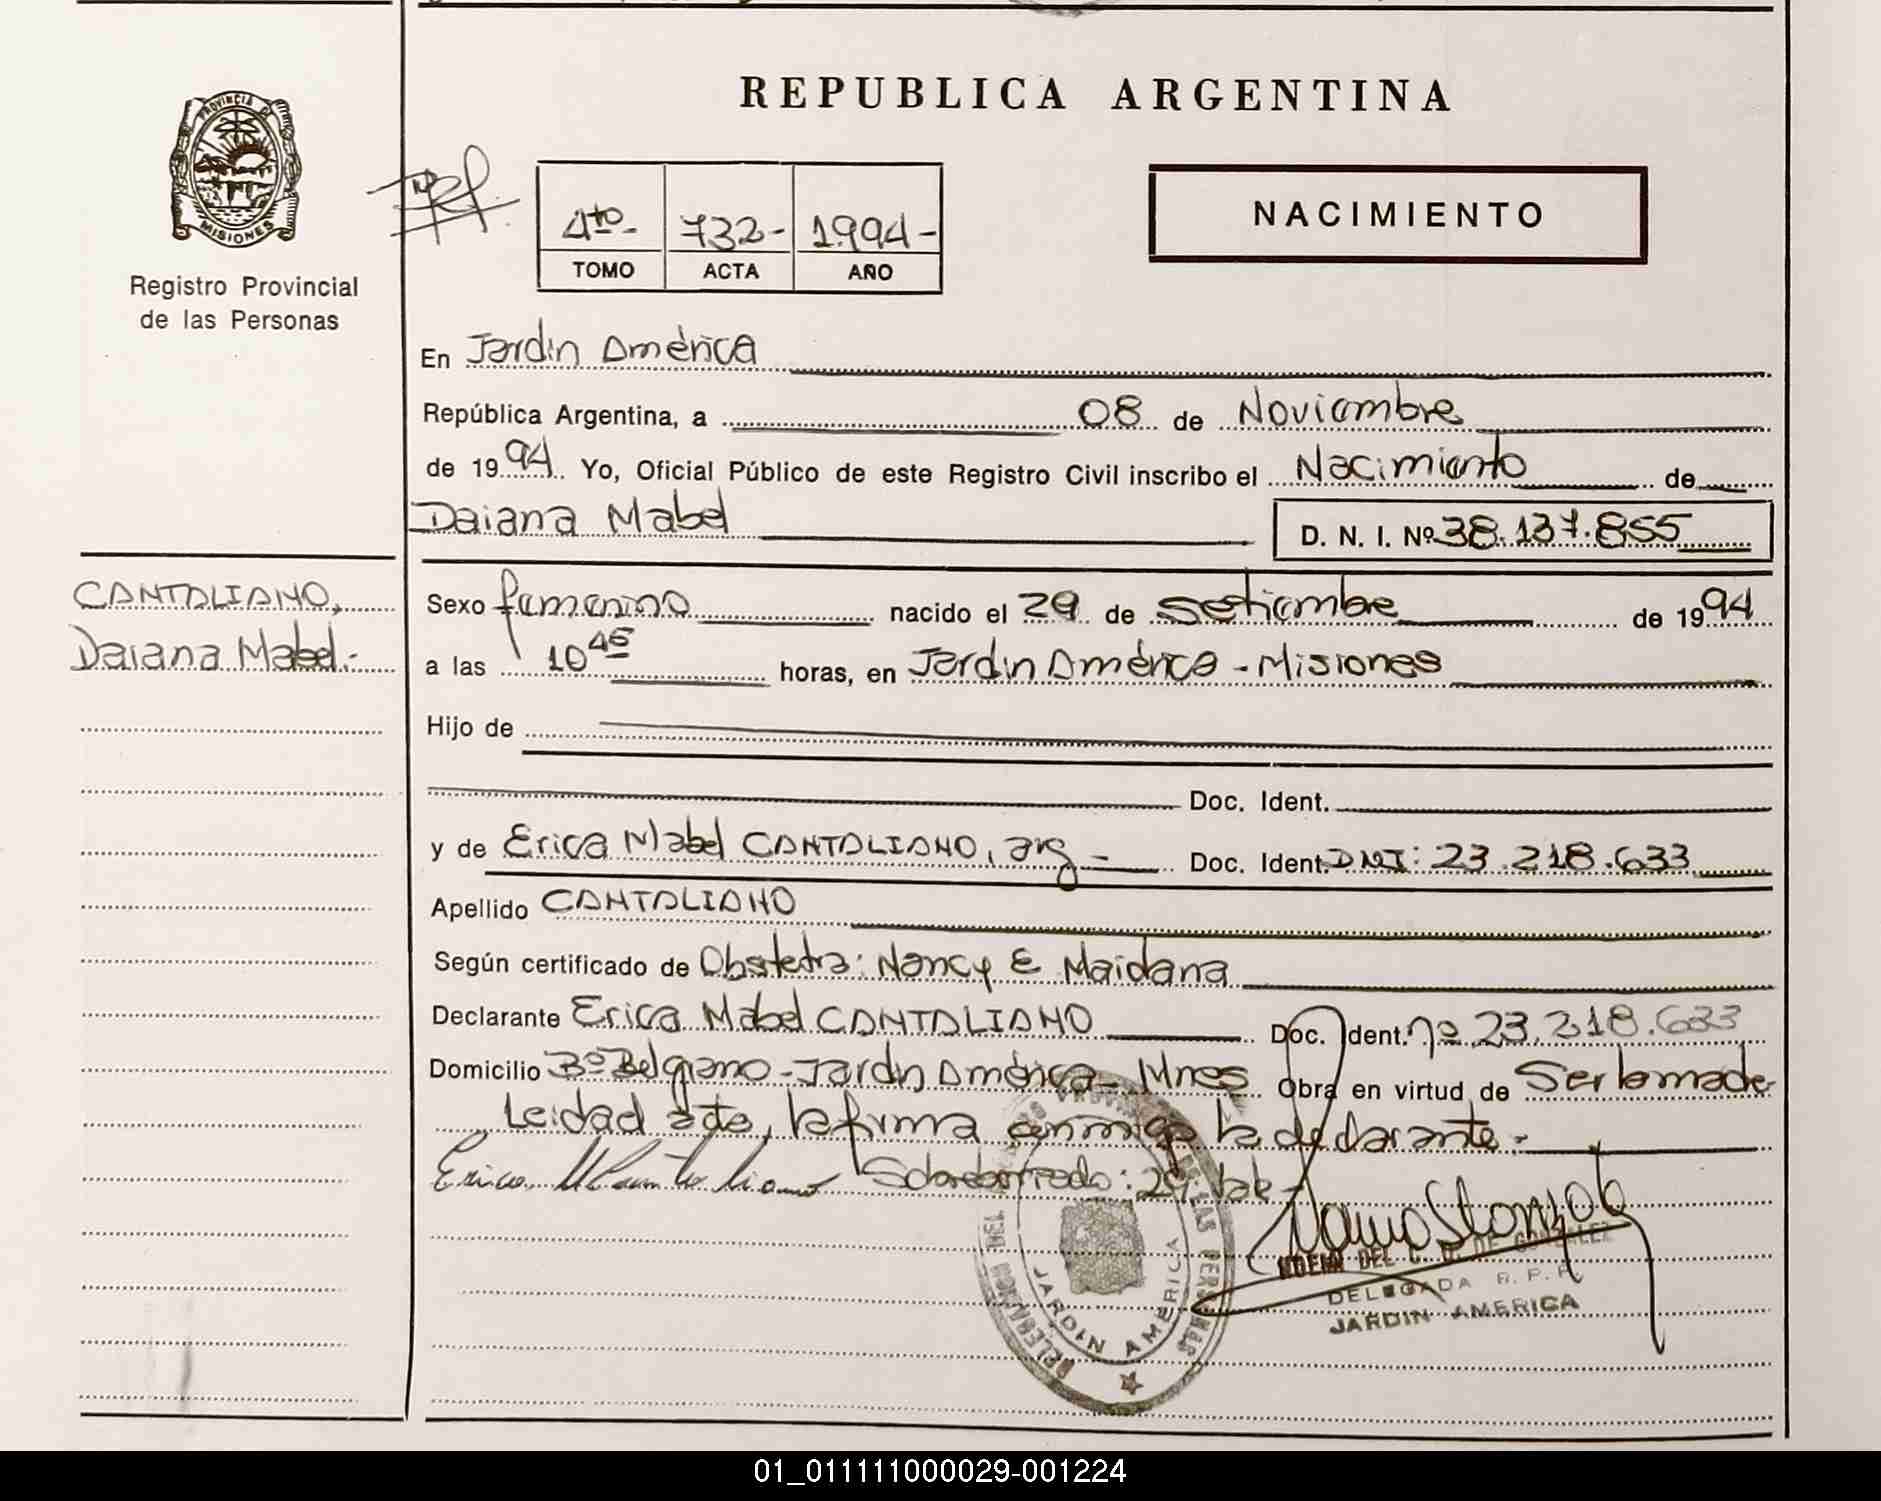 REPUBLICA ARGENTINA
PROVINCIA DE
MISIONES
Registro Provincial
de las Personas
4to- 732- 1994-
TOMO ACTA AÑO
NACIMIENTO
En Jardin América
República Argentina, a 08 de Noviembre
de 1994 Yo, Oficial Público de este Registro Civil inscribo el Nacimiento de
Daiana Mabel D. N. I. Nº 38.137.855
CANTALIANO,
Daiana Mabel.-
Sexo femenino nacido el 29 de Setiembre de 1994
a las 10 45 horas, en Jardin América - Misiones
Hijo de
Doc. Ident.
y de Erica Mabel CANTALIANO, arg - Doc. Ident. DNI: 23.218.633
Apellido CANTALIANO
Según certificado de Obstetra: Nancy E Maidana
Declarante Erica Mabel CANTALIANO Doc. Ident. nº 23.218.633
Domicilio Bº Belgrano - Jardin América - Mnes Obra en virtud de Ser la madre
Leidad acta, la firma conmigo la declarante.-
Erica M Cantaliano Sobreborrado: 29 Vale-
DELEGACION DEL REGISTRO PROVINCIAL DE LAS PERSONAS
JARDIN AMERICA
NOEMI DEL C. DE GONZALEZ
DELEGADA R. P. P.
JARDIN AMERICA
01_011111000029-001224